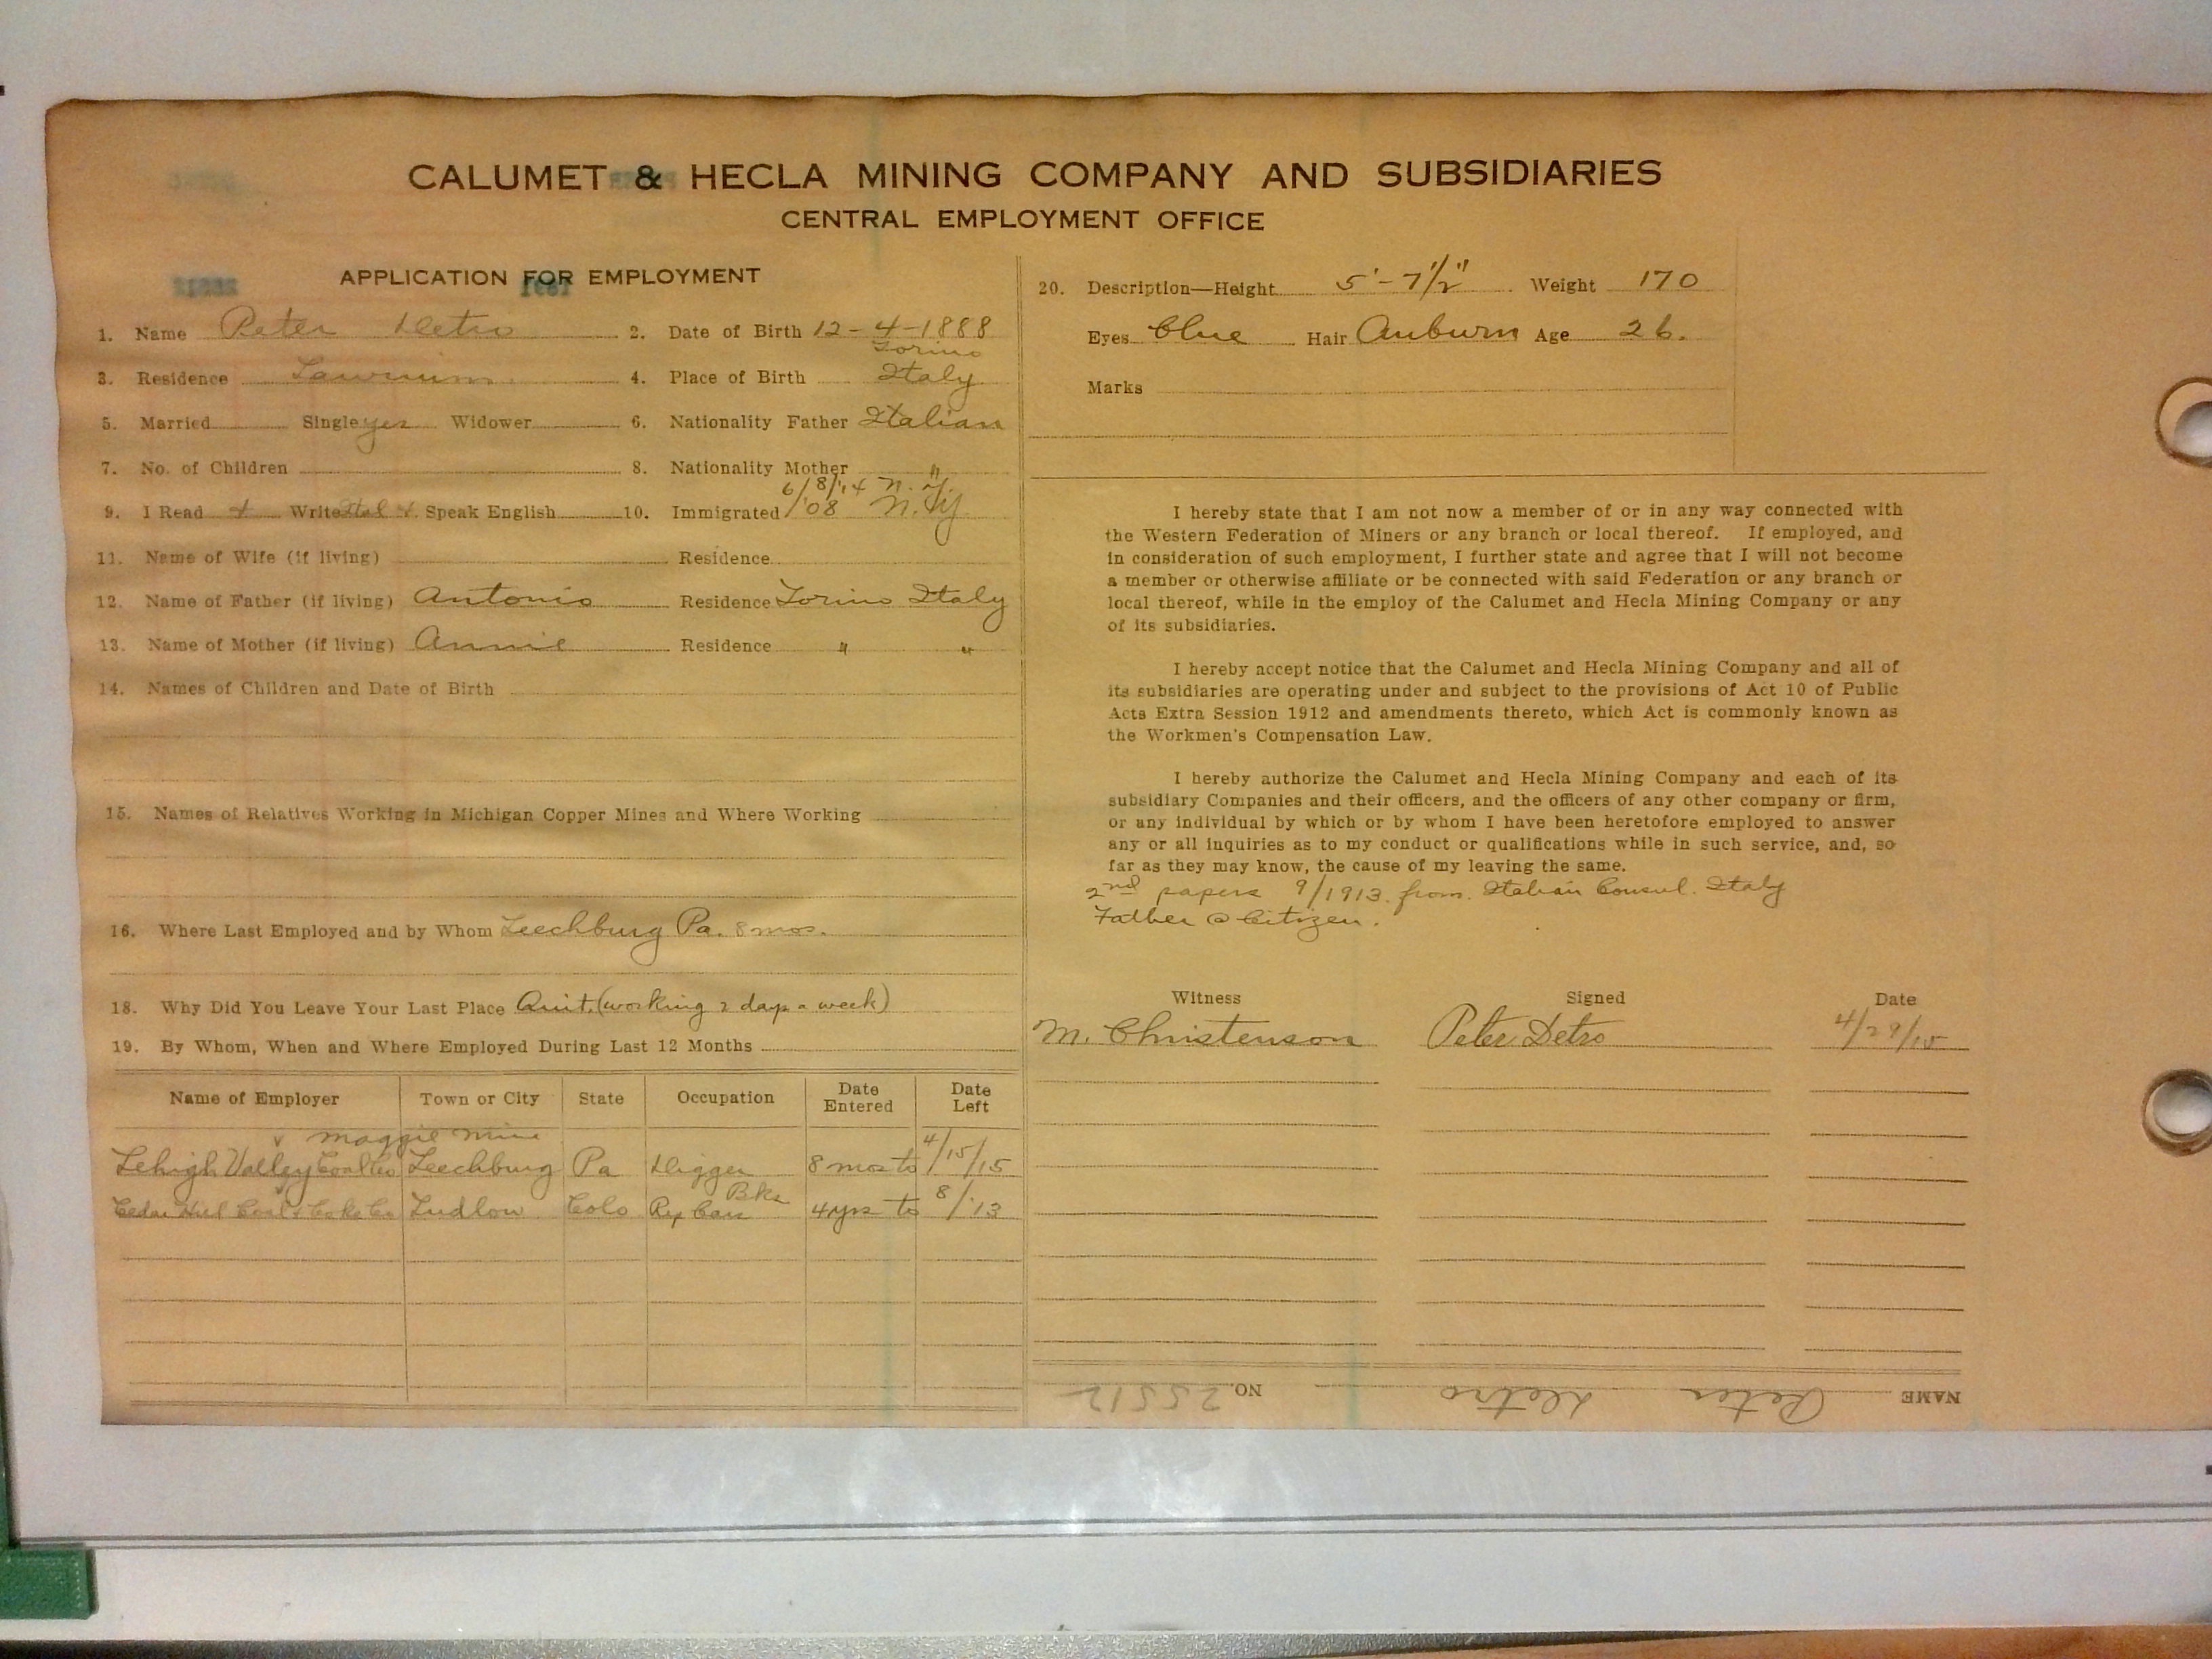 CALUMET & HECLA MINING COMPANY AND SUBSIDIARIES
CENTRAL EMPLOYMENT OFFICE
APPLICATION FOR EMPLOYMENT
1. Name Peter Detro 2. Date of Birth 12-4-1888
Torino
3. Residence Laurium 4. Place of Birth Italy
5. Married Single yes Widower 6. Nationality Father Italian
7. No. of Children 8. Nationality Mother "
6/8/14 N.Y.
9. I Read + Write Ital +. Speak English 10. Immigrated /08 N.Y.
11. Name of Wife (if living) Residence
12. Name of Father (if living) Antonio Residence Torino Italy
13. Name of Mother (if living) Annie Residence " "
14. Names of Children and Date of Birth
15. Names of Relatives Working in Michigan Copper Mines and Where Working
16. Where Last Employed and by Whom Leechburg Pa. 8 mos.
18. Why Did You Leave Your Last Place Quit. (working 2 days a week)
19. By Whom, When and Where Employed During Last 12 Months
Name of Employer Town or City State Occupation Date Entered Date Left
Maggie Mine
Lehigh Valley Coal Co Leechburg Pa Digger 8 mos to 4/15/15
Cedar Hill Coal & Coke Co Ludlow Colo Rep Cars Bks 4 yrs to 8/'13
20. Description—Height 5'-7 1/2" Weight 170
Eyes Blue Hair Auburn Age 26.
Marks
I hereby state that I am not now a member of or in any way connected with
the Western Federation of Miners or any branch or local thereof. If employed, and
in consideration of such employment, I further state and agree that I will not become
a member or otherwise affiliate or be connected with said Federation or any branch or
local thereof, while in the employ of the Calumet and Hecla Mining Company or any
of its subsidiaries.
I hereby accept notice that the Calumet and Hecla Mining Company and all of
its subsidiaries are operating under and subject to the provisions of Act 10 of Public
Acts Extra Session 1912 and amendments thereto, which Act is commonly known as
the Workmen's Compensation Law.
I hereby authorize the Calumet and Hecla Mining Company and each of its
subsidiary Companies and their officers, and the officers of any other company or firm,
or any individual by which or by whom I have been heretofore employed to answer
any or all inquiries as to my conduct or qualifications while in such service, and, so
far as they may know, the cause of my leaving the same.
2nd papers 9/1913. from. Italian Consul. Italy
Father @ Citizen.
Witness Signed Date
M. Christenson Peter Detro 4/29/15
NAME Peter Detro NO. 25512